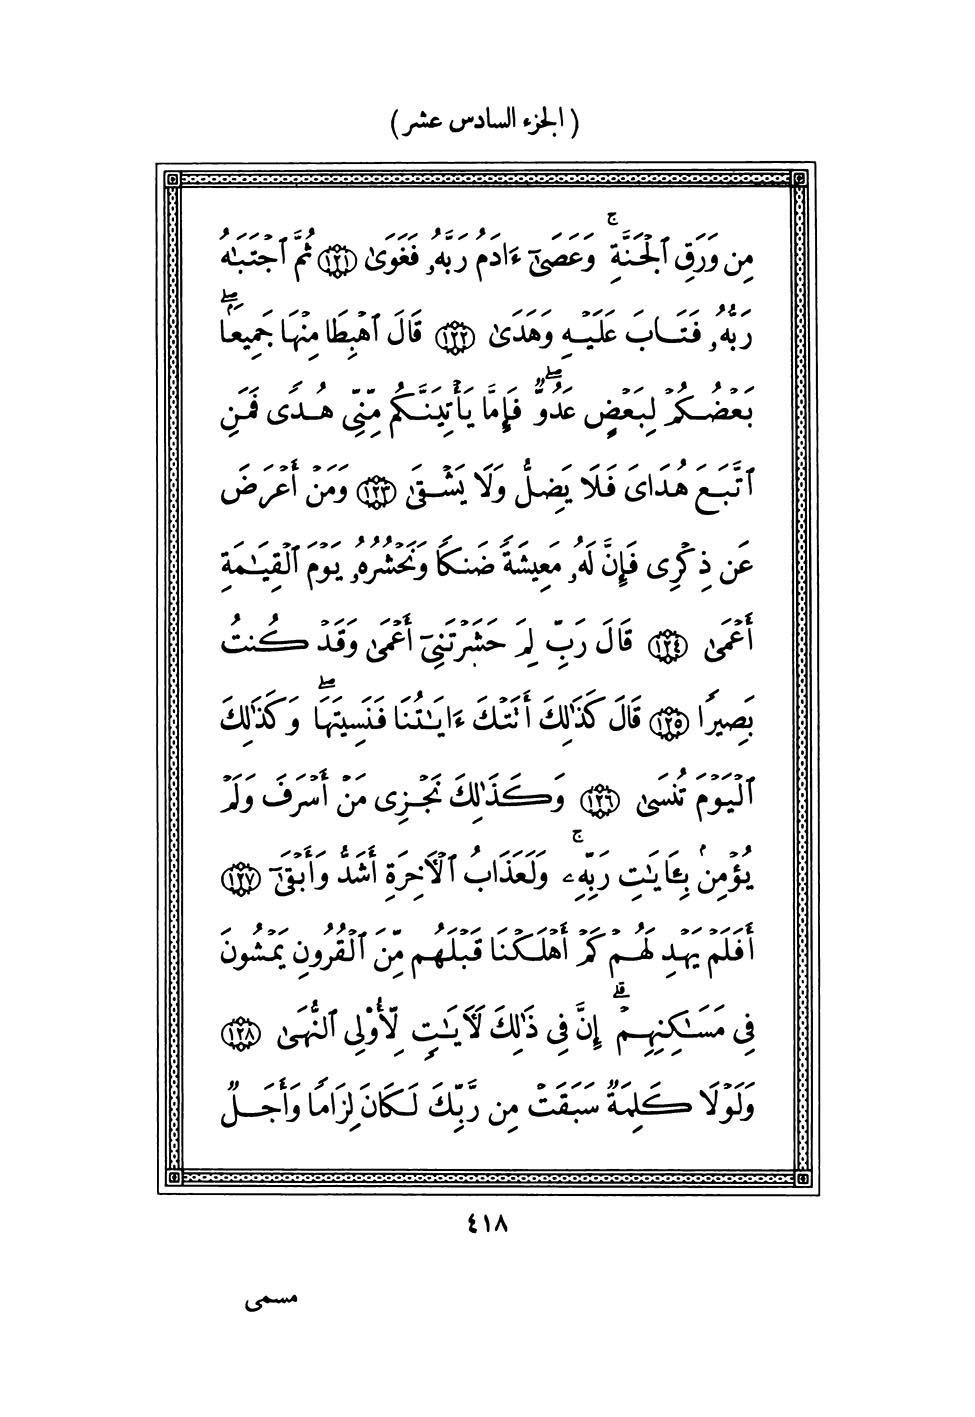 ( الجزء السادس عشر )
مِن وَرَقِ ٱلْجَنَّةِ ۚ وَعَصَىٰٓ ءَادَمُ رَبَّهُۥ فَغَوَىٰ ﴿١٢١﴾ ثُمَّ ٱجْتَبَٰهُ
رَبُّهُۥ فَتَابَ عَلَيْهِ وَهَدَىٰ ﴿١٢٢﴾ قَالَ ٱهْبِطَا مِنْهَا جَمِيعًۢا ۖ
بَعْضُكُمْ لِبَعْضٍ عَدُوٌّ ۖ فَإِمَّا يَأْتِيَنَّكُم مِّنِّى هُدًى فَمَنِ
ٱتَّبَعَ هُدَاىَ فَلَا يَضِلُّ وَلَا يَشْقَىٰ ﴿١٢٣﴾ وَمَنْ أَعْرَضَ
عَن ذِكْرِى فَإِنَّ لَهُۥ مَعِيشَةً ضَنكًا وَنَحْشُرُهُۥ يَوْمَ ٱلْقِيَٰمَةِ
أَعْمَىٰ ﴿١٢٤﴾ قَالَ رَبِّ لِمَ حَشَرْتَنِىٓ أَعْمَىٰ وَقَدْ كُنتُ
بَصِيرًا ﴿١٢٥﴾ قَالَ كَذَٰلِكَ أَتَتْكَ ءَايَٰتُنَا فَنَسِيتَهَا ۖ وَكَذَٰلِكَ
ٱلْيَوْمَ تُنسَىٰ ﴿١٢٦﴾ وَكَذَٰلِكَ نَجْزِى مَنْ أَسْرَفَ وَلَمْ
يُؤْمِنۢ بِـَٔايَٰتِ رَبِّهِۦ ۚ وَلَعَذَابُ ٱلْـَٔاخِرَةِ أَشَدُّ وَأَبْقَىٰٓ ﴿١٢٧﴾
أَفَلَمْ يَهْدِ لَهُمْ كَمْ أَهْلَكْنَا قَبْلَهُم مِّنَ ٱلْقُرُونِ يَمْشُونَ
فِى مَسَٰكِنِهِمْ ۗ إِنَّ فِى ذَٰلِكَ لَـَٔايَٰتٍ لِّأُو۟لِى ٱلنُّهَىٰ ﴿١٢٨﴾
وَلَوْلَا كَلِمَةٌ سَبَقَتْ مِن رَّبِّكَ لَكَانَ لِزَامًا وَأَجَلٌ
٤١٨
مسمى